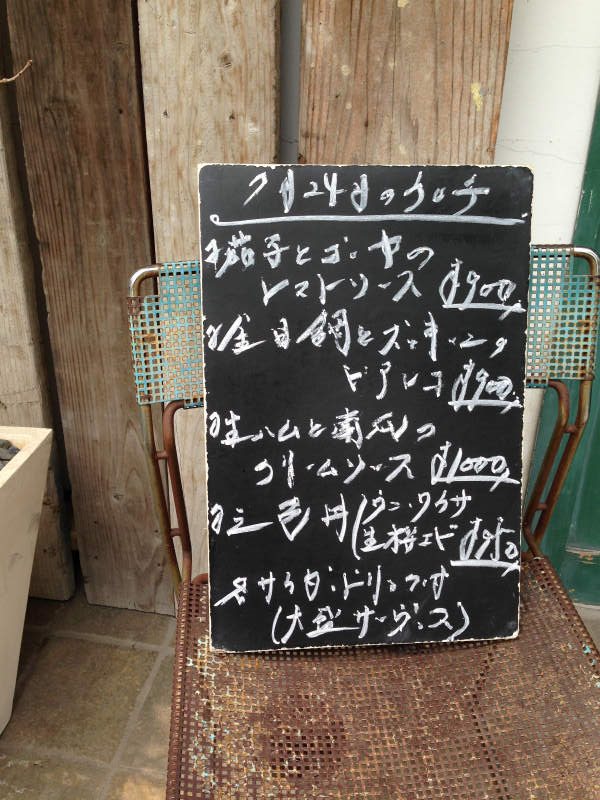 7月24日のランチ
茄子とゴーヤの
トマトソース ¥900
金目鯛とズッキーニの
ビアンコ ¥900
生ハムと南瓜の
クリームソース ¥1000
三色丼(ウニ、ワカサ
生桜エビ ¥950
サラダ、ドリンク付
(大盛サーヴィス)